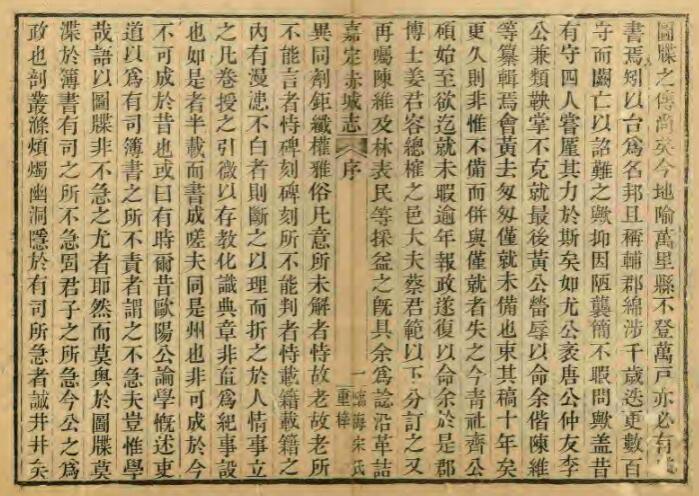 圖牒之傳尚矣今地喻萬里縣不登萬戸亦必有成
書焉矧以台爲名邦且稱輔郡綿涉千歲迭更數百
守而闕亡以詔難之歟抑因陋襲簡不暇問歟蓋昔
有守四人嘗屢其力於斯矣如尤公袤唐公仲友李
公兼類鞅掌不克就最後黃公㽦辱以命余偕陳維
等纂輯焉會黃去匆匆僅就未備也東其稿十年矣
更久則非惟不備而併與僅就者失之今青社齊公
碩始至欲迄就未暇逾年報政遂復以命余於是郡
博士姜君容總榷之邑大夫蔡君範以下分訂之又
再囑陳維及林表民等採益之旣具余爲諗沿革詰
嘉定赤城志 序 一 臨海宋氏重梓
異同劑鉅纖權雅俗凡意所未解者恃故老故老所
不能言者恃碑刻碑刻所不能判者恃載籍載籍之
內有漫漶不白者則斷之以理而折之於人情事立
之凡卷授之引微以存教化識典章非直爲紀事設
也如是者半載而書成嗟夫同是州也非可成於今
不可成於昔也或曰有時爾昔歐陽公論學慨述吏
道以爲有司簿書之所不責者謂之不急夫豈惟學
哉語以圖牒非不急之尤者耶然而莫與於圖牒莫
渫於簿書有司之所不急固君子之所急今公之爲
政也剖叢滌煩燭幽洞隱於有司所急者誠井井矣